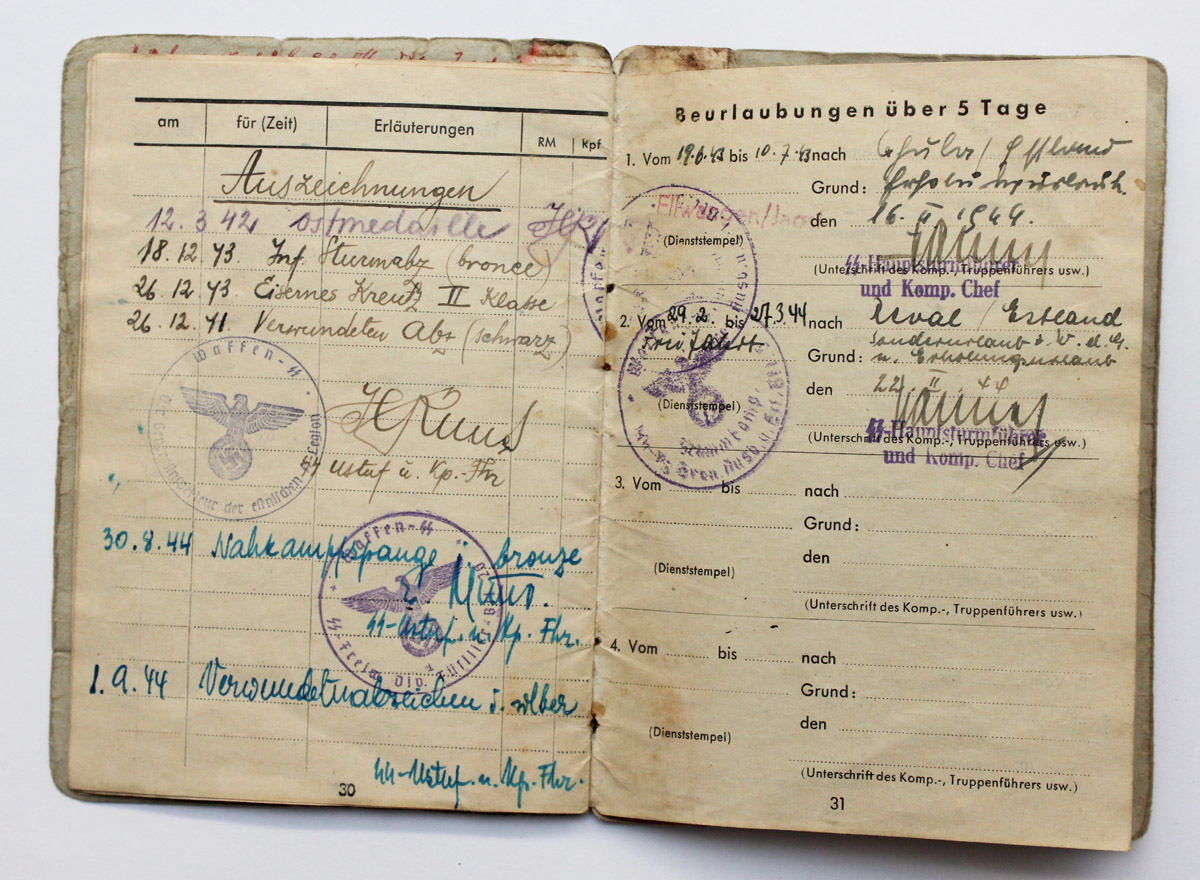 am für (Zeit) Erläuterungen RM kpf
Auszeichnungen
12.3 42 Ostmedaille
18.12.43 Inf Sturmabz (bronce)
26.12.43 Eisernes Kreutz II Klasse
26.12.41 Verwundeten Abz (schwarz)
Waffen-SS
der estnischen SS-Legion
SS Ustuf u. Kp.-Fhr
30.8.44 Nahkampfspange i. bronze
Waffen-SS
SS-Ustuf. u. Kp. Fhr.
SS-Freiw. Div.
1.9.44 Verwundetenabzeichen i. silber
SS-Ustuf. u. Kp. Fhr.
30
Beurlaubungen über 5 Tage
1. Vom 19.6.43 bis 10.7.43 nach / Estland
Grund: Erholungsurlaub.
Ellwangen/Jagst
den 16. II. 1944.
(Dienststempel)
SS-Hauptsturmführer
(Unterschrift des Komp.-, Truppenführers usw.)
und Komp. Chef
2. Vom 29.2. bis 27.3.44 nach Reval / Estland
Freifahrt
Sonderurlaub
Grund: u. Erholungsurlaub
den 22. II. 44
(Dienststempel)
Stammkomp.
SS-Hauptsturmführer
(Unterschrift des Komp.-, Truppenführers usw.)
und Komp. Chef
3. Vom bis nach
Grund:
den
(Dienststempel)
(Unterschrift des Komp.-, Truppenführers usw.)
4. Vom bis nach
Grund:
den
(Dienststempel)
(Unterschrift des Komp.-, Truppenführers usw.)
31